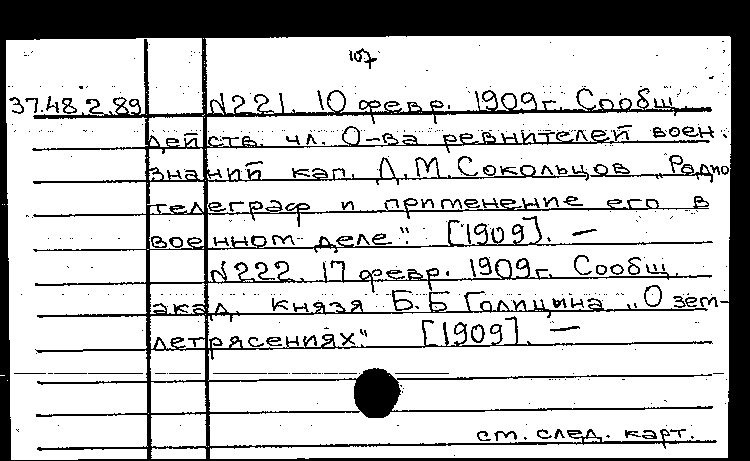 107
37.48.2.89 N221. 10 февр. 1909г. Сообщ.
действ. чл. О-ва ревнителей воен.
знаний кап. Д.М.Сокольцов „Радио
телеграф и применение его в
военном деле". [1909]. —
N222. 17 февр. 1909г. Сообщ.
акад. князя Б.Б Голицына „О зем-
летрясениях" [1909]. —
см. след. карт.